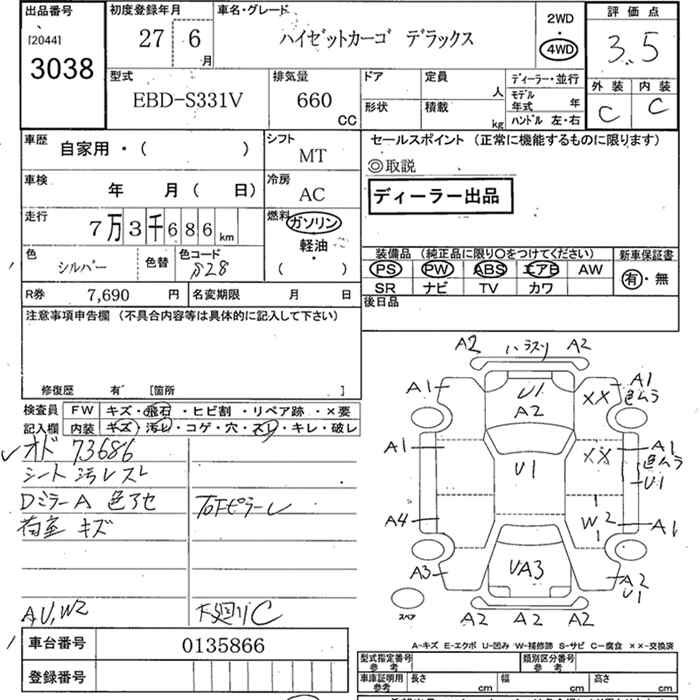 出品番号 初度登録年月 車名・グレード 2WD 評価点
[2044] 27 6 月 ハイゼットカーゴ デラックス 4WD 3.5
3038
型式 排気量 ドア 定員 人 ディーラー・並行 外装 内装
EBD-S331V 660 CC 形状 積載 kg モデル年式 年 C C
ハンドル 左・右
車歴 自家用・( ) シフト MT セールスポイント (正常に機能するものに限ります)
◎取説
車検 年 月( 日) 冷房 AC ディーラー出品
走行 7万3千686km 燃料 ガソリン
軽油・
( )
色 シルバー 色替 色コード S28
装備品 (純正品に限り○をつけてください) 新車保証書
PS PW ABS エアB AW 有・無
SR ナビ TV カワ
R券 7,690 円 名変期限 月 日 後日品
注意事項申告欄 (不具合内容等は具体的に記入して下さい)
修復歴 有 [箇所 ]
検査員 FW キズ・飛石・ヒビ割・リペア跡・×要
記入欄 内装 キズ・汚レ・コゲ・穴・スレ・キレ・破レ
オド 73686
シート 汚レスレ
DミラーA 色アセ
荷室 キズ
A,U,W2 下廻りC
A2 A2
A1 U1 A1
A2 XX 色ムラ
A1 XX A1
U1 色ムラ
U1
A4 W2 A1
A3 UA3 A2
U1
スペア A2 A2 A2
A-キズ E-エクボ U-凹み W-補修跡 S-サビ C-腐食 ××-交換済
車台番号 0135866
登録番号
型式指定番号 参考 類別区分番号 参考
車庫証明用 参考 長さ cm 幅 cm 高さ cm